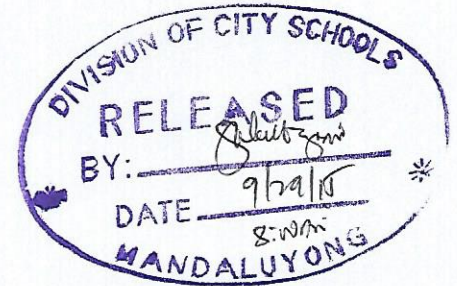 DIVISION OF CITY SCHOOLS
RELEASED
BY:
DATE 9/29/15
MANDALUYONG